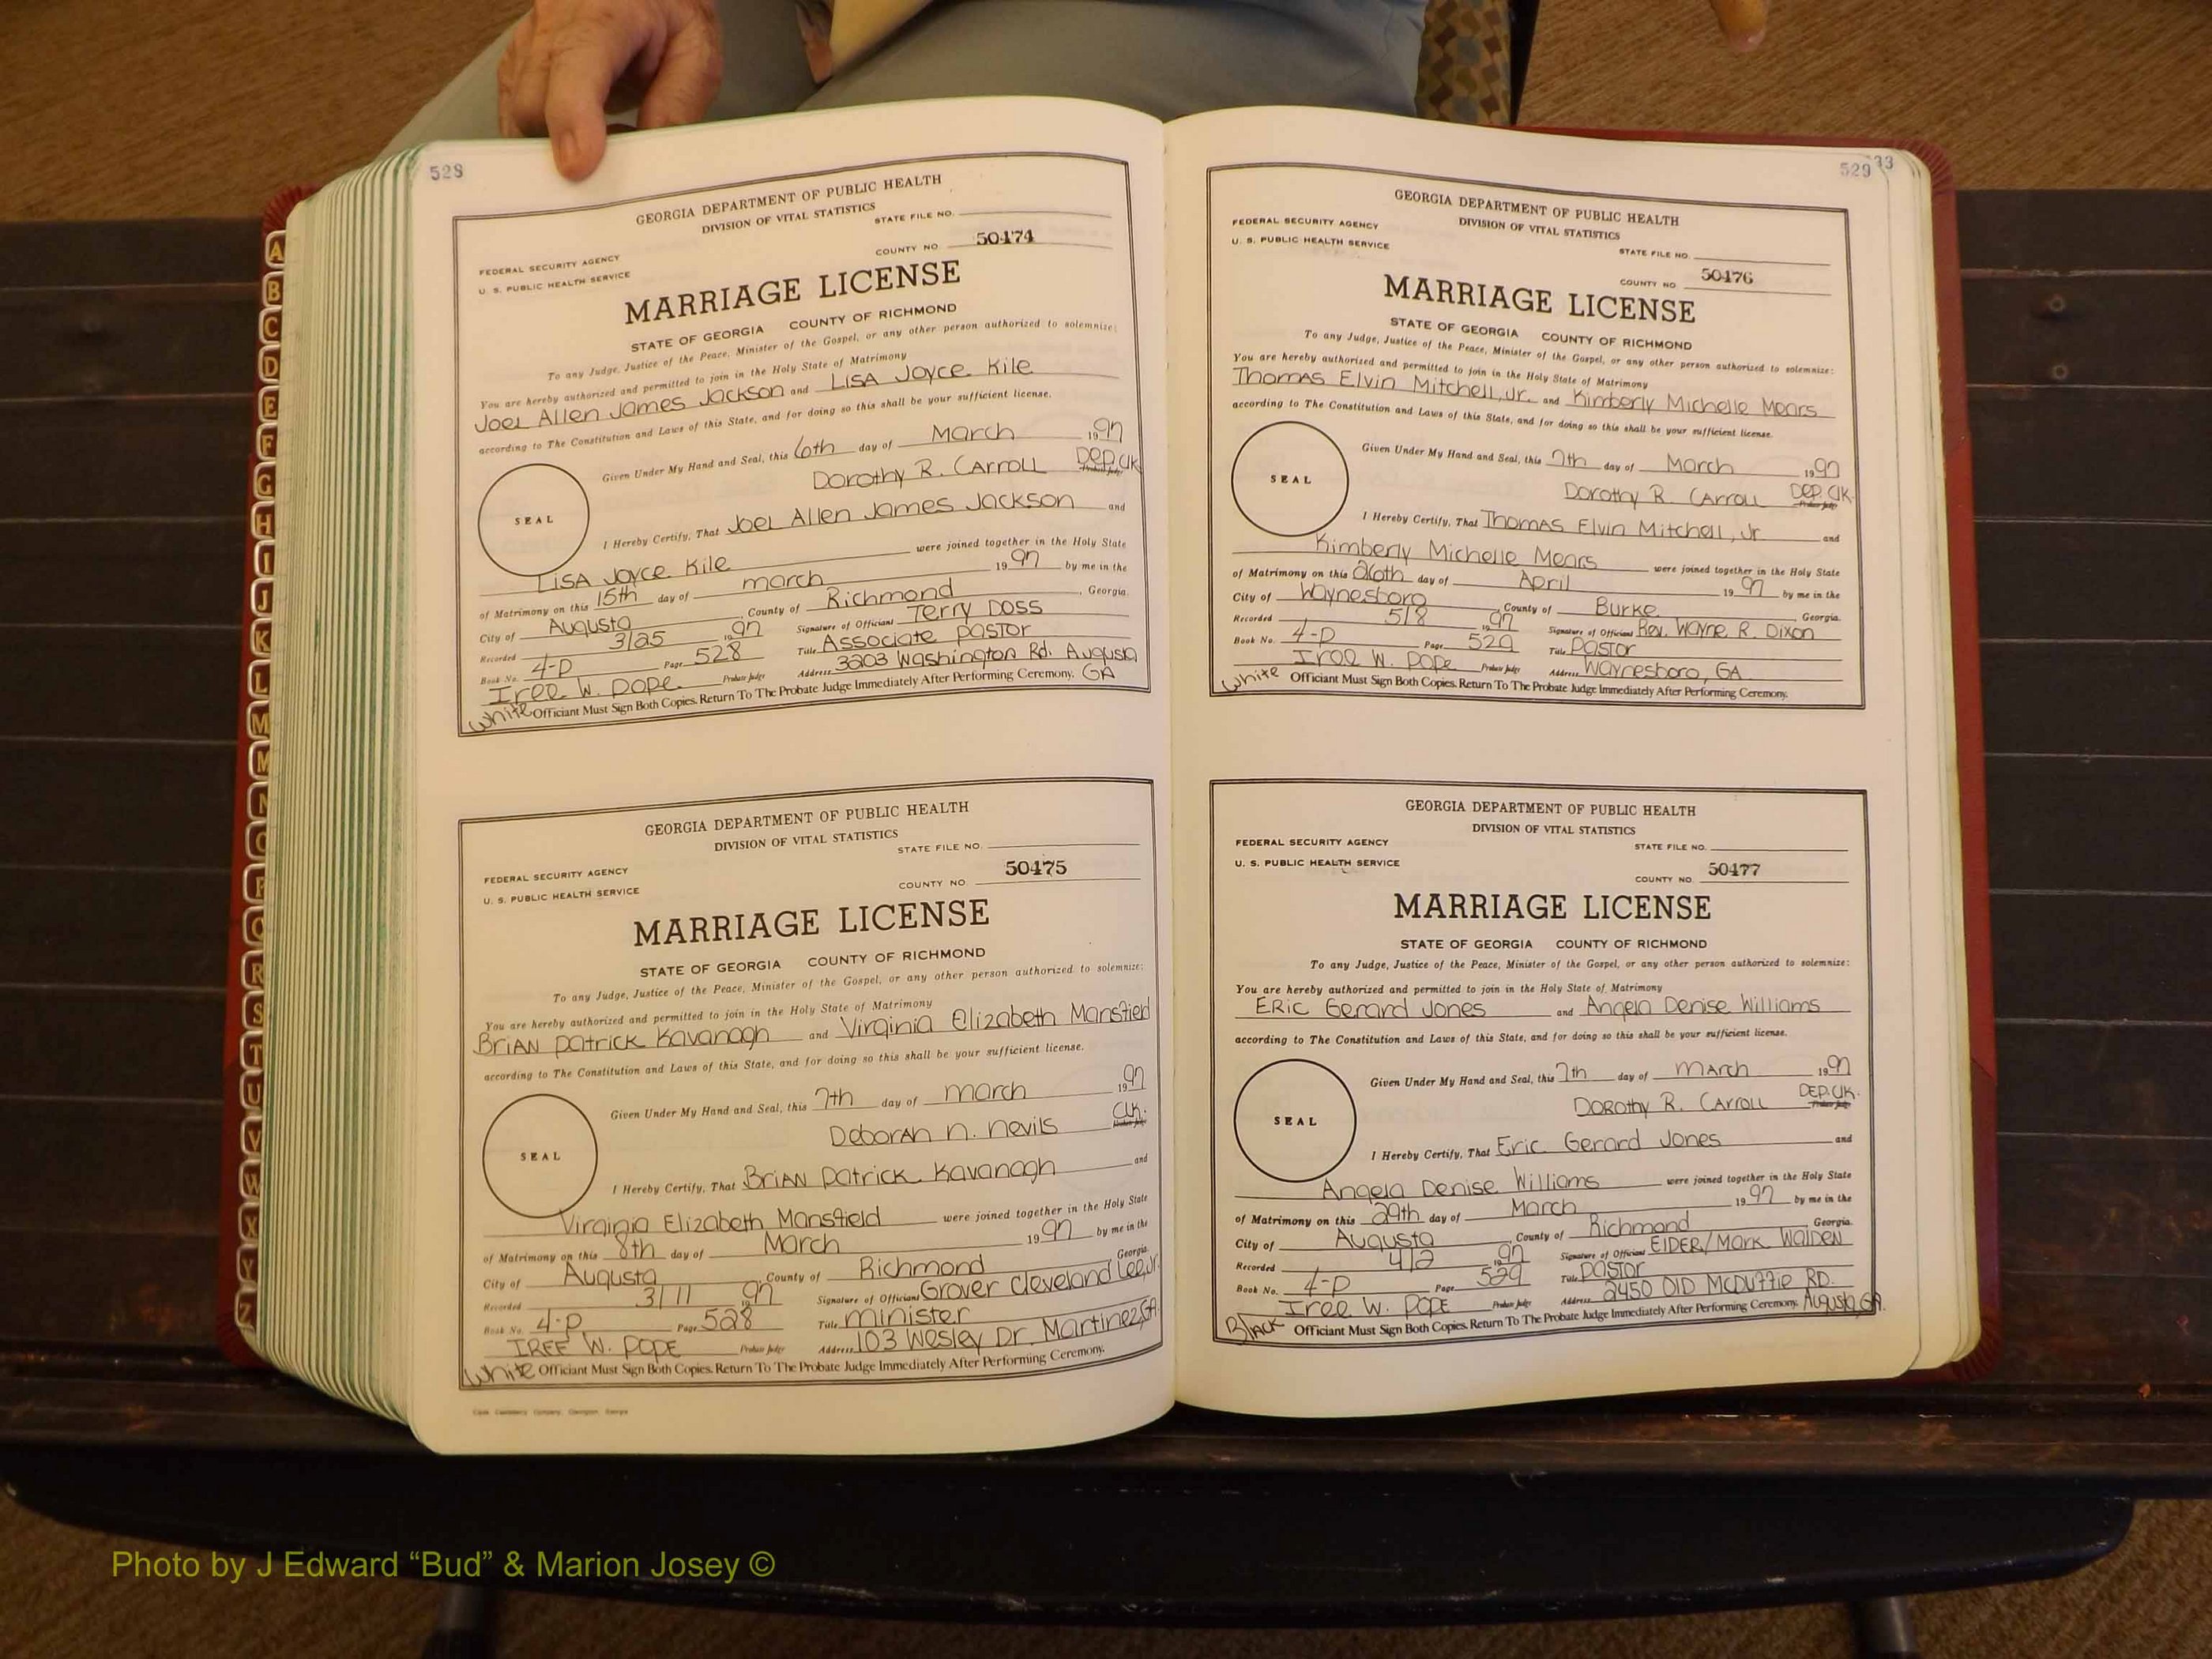 528
GEORGIA DEPARTMENT OF PUBLIC HEALTH
DIVISION OF VITAL STATISTICS
STATE FILE NO.
COUNTY NO. 50474
FEDERAL SECURITY AGENCY
U. S. PUBLIC HEALTH SERVICE
MARRIAGE LICENSE
STATE OF GEORGIA COUNTY OF RICHMOND
To any Judge, Justice of the Peace, Minister of the Gospel, or any other person authorized to solemnize:
You are hereby authorized and permitted to join in the Holy State of Matrimony
Joel Allen James Jackson and Lisa Joyce Kile
according to The Constitution and Laws of this State, and for doing so this shall be your sufficient license.
Given Under My Hand and Seal, this 6th day of March 1997
Dorothy R. Carroll Dep. Clk
Probate Judge
SEAL
I Hereby Certify, That Joel Allen James Jackson and
Lisa Joyce Kile were joined together in the Holy State
of Matrimony on this 15th day of March 1997 by me in the
City of Augusta County of Richmond, Georgia.
Recorded 3/25 1997 Signature of Officiant Terry Doss
Book No. 4-P Page 528 Title Associate Pastor
Iree W. Pope Probate Judge Address 3203 Washington Rd. Augusta GA
White Officiant Must Sign Both Copies. Return To The Probate Judge Immediately After Performing Ceremony.
GEORGIA DEPARTMENT OF PUBLIC HEALTH
DIVISION OF VITAL STATISTICS
STATE FILE NO.
COUNTY NO. 50475
FEDERAL SECURITY AGENCY
U. S. PUBLIC HEALTH SERVICE
MARRIAGE LICENSE
STATE OF GEORGIA COUNTY OF RICHMOND
To any Judge, Justice of the Peace, Minister of the Gospel, or any other person authorized to solemnize:
You are hereby authorized and permitted to join in the Holy State of Matrimony
Brian Patrick Kavanagh and Virginia Elizabeth Mansfield
according to The Constitution and Laws of this State, and for doing so this shall be your sufficient license.
Given Under My Hand and Seal, this 7th day of March 1997
Deborah N. Nevils Clk.
Probate Judge
SEAL
I Hereby Certify, That Brian Patrick Kavanagh and
Virginia Elizabeth Mansfield were joined together in the Holy State
of Matrimony on this 8th day of March 1997 by me in the
City of Augusta, County of Richmond Georgia.
Recorded 3/11 1997 Signature of Officiant Grover Cleveland Lee, Jr.
Book No. 4-P Page 528 Title Minister
IREE W. POPE Probate Judge Address 103 Wesley Dr. Martinez, GA.
White Officiant Must Sign Both Copies. Return To The Probate Judge Immediately After Performing Ceremony.
529
33
GEORGIA DEPARTMENT OF PUBLIC HEALTH
DIVISION OF VITAL STATISTICS
FEDERAL SECURITY AGENCY
U. S. PUBLIC HEALTH SERVICE
STATE FILE NO.
COUNTY NO. 50476
MARRIAGE LICENSE
STATE OF GEORGIA COUNTY OF RICHMOND
To any Judge, Justice of the Peace, Minister of the Gospel, or any other person authorized to solemnize:
You are hereby authorized and permitted to join in the Holy State of Matrimony
Thomas Elvin Mitchell, Jr. and Kimberly Michelle Mears
according to The Constitution and Laws of this State, and for doing so this shall be your sufficient license.
Given Under My Hand and Seal, this 7th day of March 1997
Dorothy R. Carroll Dep. Clk.
Probate Judge
SEAL
I Hereby Certify, That Thomas Elvin Mitchell, Jr and
Kimberly Michelle Mears were joined together in the Holy State
of Matrimony on this 26th day of April 1997 by me in the
City of Waynesboro, County of Burke Georgia.
Recorded 5/8 1997 Signature of Officiant Rev. Wayne R. Dixon
Book No. 4-P Page 529 Title Pastor
Iree W. Pope Probate Judge Address Waynesboro, GA
White Officiant Must Sign Both Copies. Return To The Probate Judge Immediately After Performing Ceremony.
GEORGIA DEPARTMENT OF PUBLIC HEALTH
DIVISION OF VITAL STATISTICS
FEDERAL SECURITY AGENCY
STATE FILE NO.
U. S. PUBLIC HEALTH SERVICE
COUNTY NO. 50477
MARRIAGE LICENSE
STATE OF GEORGIA COUNTY OF RICHMOND
To any Judge, Justice of the Peace, Minister of the Gospel, or any other person authorized to solemnize:
You are hereby authorized and permitted to join in the Holy State of Matrimony
Eric Gerard Jones and Angela Denise Williams
according to The Constitution and Laws of this State, and for doing so this shall be your sufficient license.
Given Under My Hand and Seal, this 7th day of March 1997
Dorothy R. Carroll DEP. Clk.
Probate Judge
SEAL
I Hereby Certify, That Eric Gerard Jones and
Angela Denise Williams were joined together in the Holy State
of Matrimony on this 29th day of March 1997 by me in the
City of Augusta, County of Richmond, Georgia.
Recorded 4/2 1997 Signature of Officiant Elder/Mark Walden
Book No. 4-P Page 529 Title Pastor
Iree W. Pope Probate Judge Address 2450 Old McDuffie RD. Augusta, GA.
Black Officiant Must Sign Both Copies. Return To The Probate Judge Immediately After Performing Ceremony.
A
B
C
D
E
F
G
H
I
J
K
L
M
M
N
O
P
Q
R
S
T
U
V
W
X
Y
Z
Photo by J Edward “Bud” & Marion Josey ©